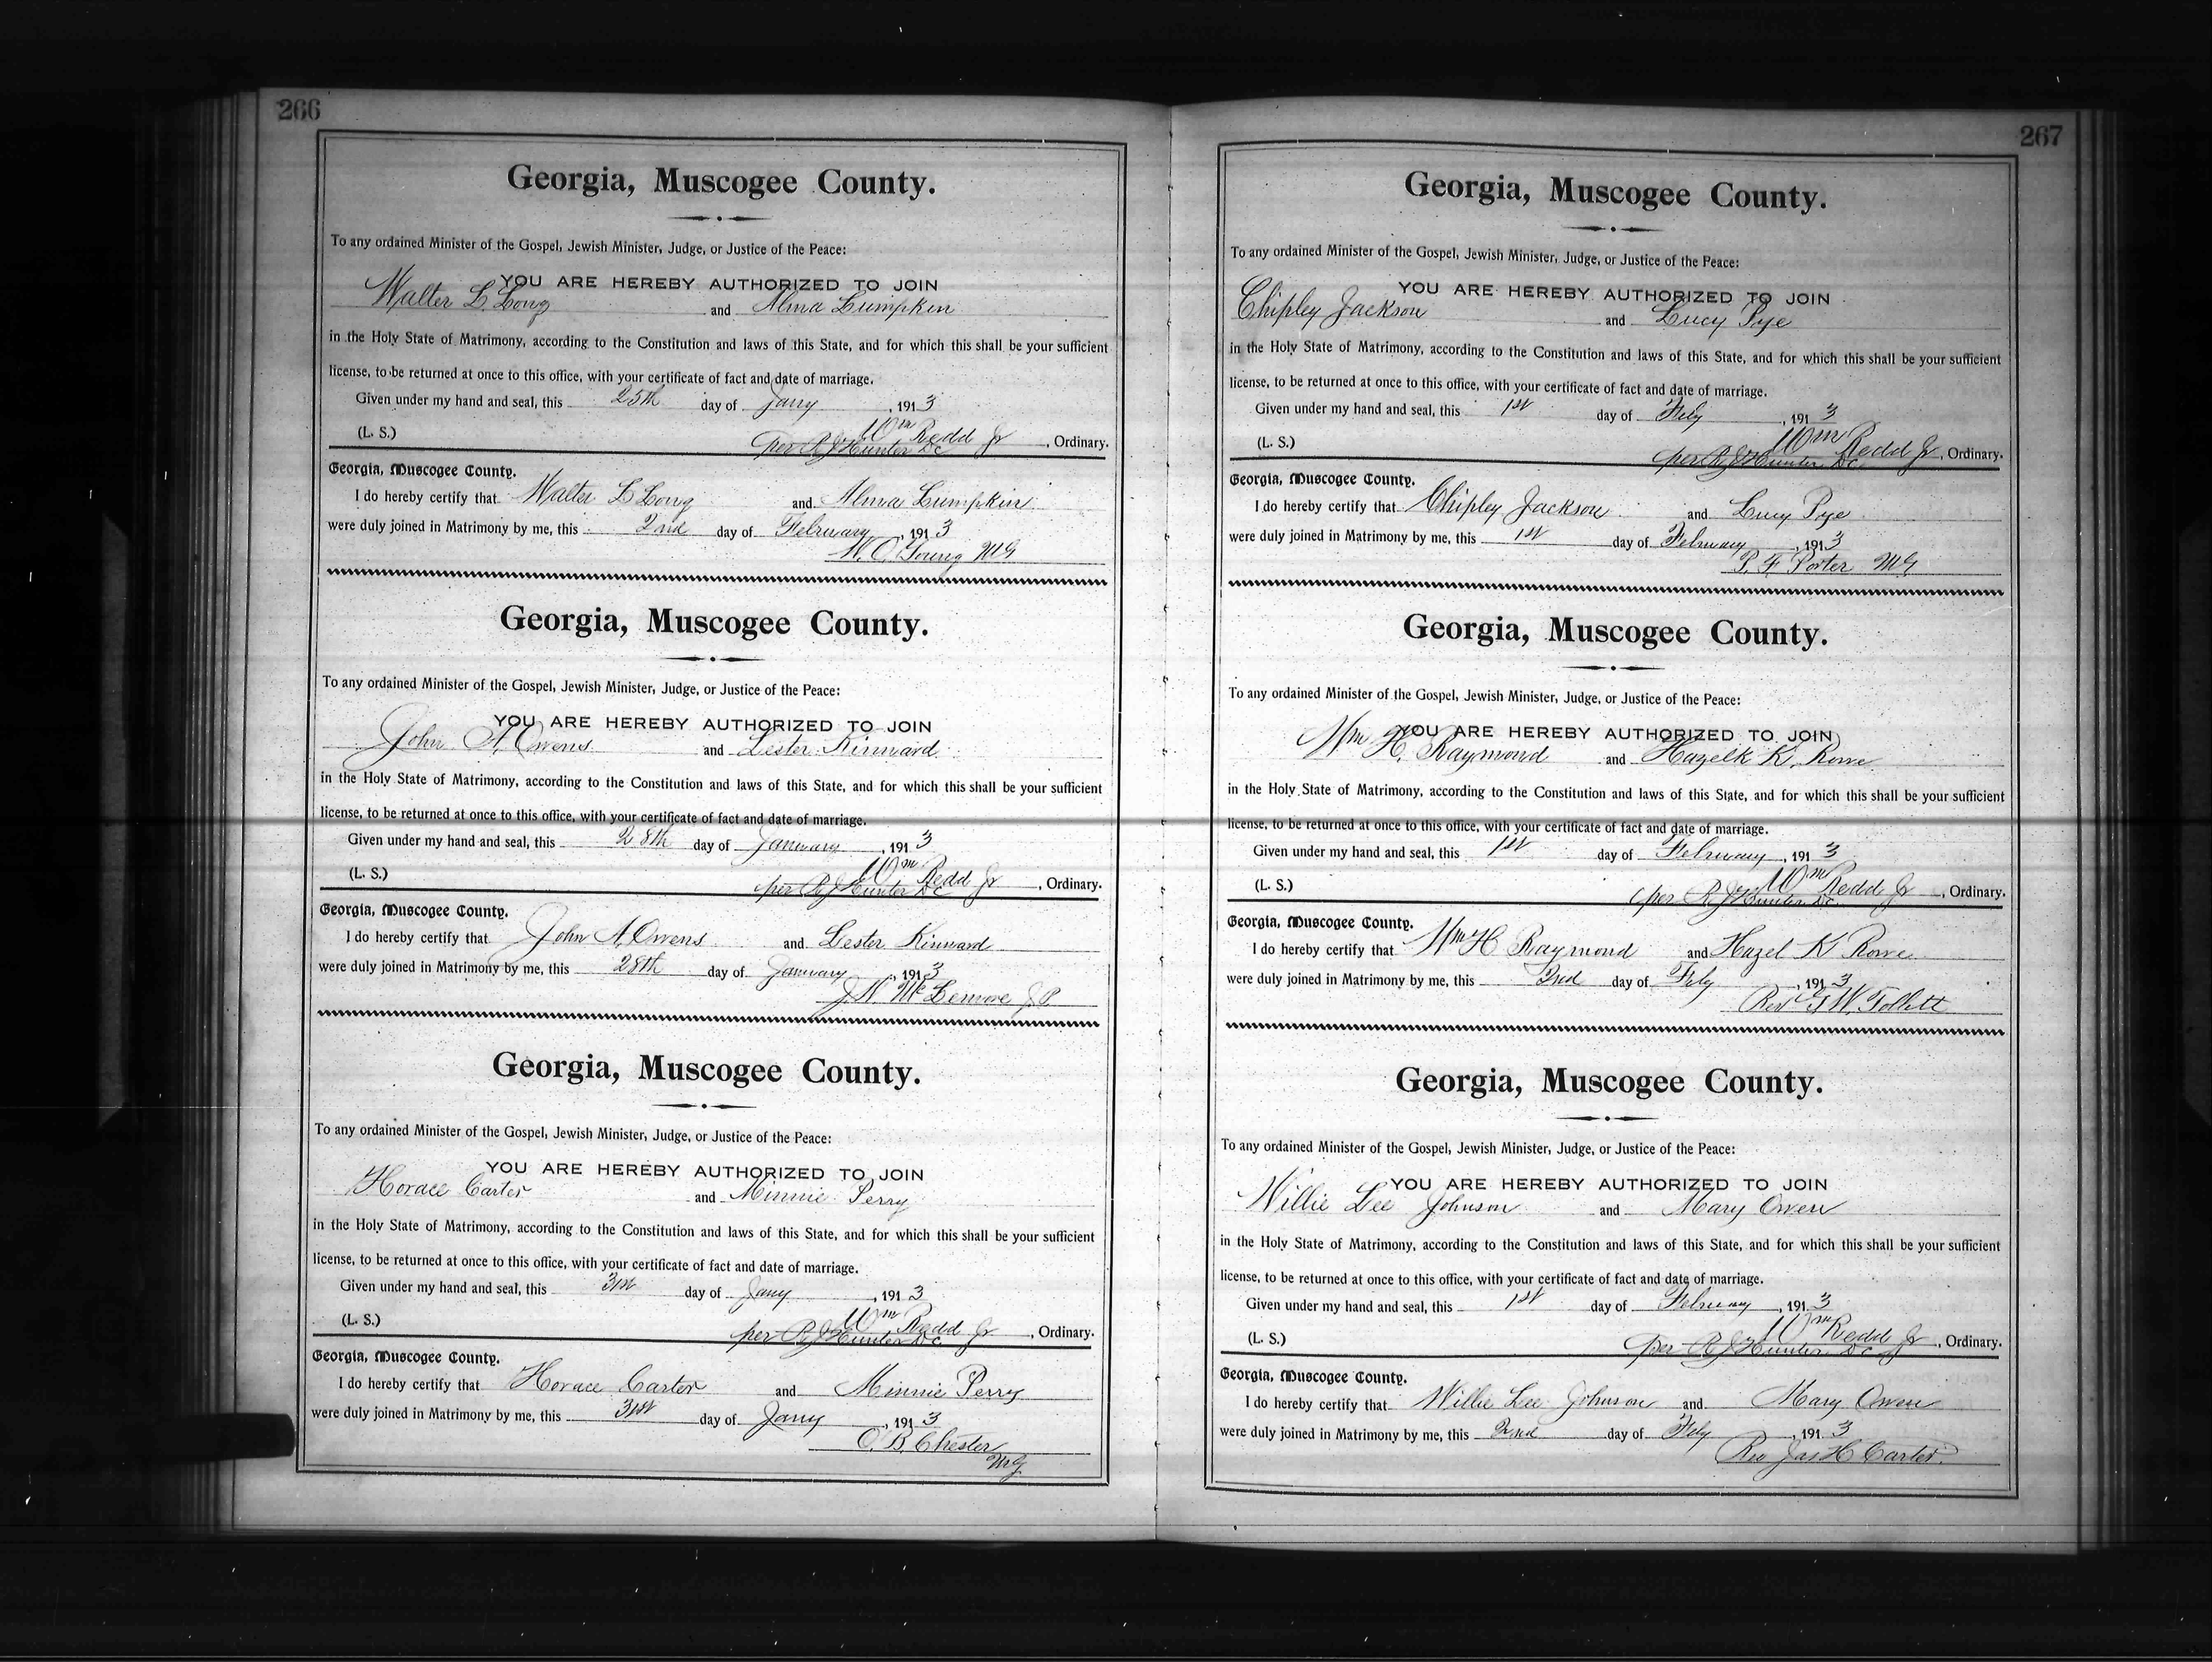 266
Georgia, Muscogee County.
To any ordained Minister of the Gospel, Jewish Minister, Judge, or Justice of the Peace:
YOU ARE HEREBY AUTHORIZED TO JOIN
Walter L Long and Alma Lumpkin
in the Holy State of Matrimony, according to the Constitution and laws of this State, and for which this shall be your sufficient
license, to be returned at once to this office, with your certificate of fact and date of marriage.
Given under my hand and seal, this 25th day of Jany, 1913
(L. S.) Wm Redd Jr, Ordinary.
per R J Hunter DC
Georgia, Muscogee County.
I do hereby certify that Walter L Long and Alma Lumpkin
were duly joined in Matrimony by me, this 2nd day of February, 1913
W. C. Young MG
Georgia, Muscogee County.
To any ordained Minister of the Gospel, Jewish Minister, Judge, or Justice of the Peace:
YOU ARE HEREBY AUTHORIZED TO JOIN
John A Owens and Lester Kinnard
in the Holy State of Matrimony, according to the Constitution and laws of this State, and for which this shall be your sufficient
license, to be returned at once to this office, with your certificate of fact and date of marriage.
Given under my hand and seal, this 28th day of January, 1913
(L. S.) Wm Redd Jr, Ordinary.
per R J Hunter DC
Georgia, Muscogee County.
I do hereby certify that John A. Owens and Lester Kinnard
were duly joined in Matrimony by me, this 28th day of January, 1913
J. H. McLemore J P
Georgia, Muscogee County.
To any ordained Minister of the Gospel, Jewish Minister, Judge, or Justice of the Peace:
YOU ARE HEREBY AUTHORIZED TO JOIN
Horace Carter and Minnie Perry
in the Holy State of Matrimony, according to the Constitution and laws of this State, and for which this shall be your sufficient
license, to be returned at once to this office, with your certificate of fact and date of marriage.
Given under my hand and seal, this 31st day of Jany, 1913
(L. S.) Wm Redd Jr, Ordinary.
per R J Hunter DC
Georgia, Muscogee County.
I do hereby certify that Horace Carter and Minnie Perry
were duly joined in Matrimony by me, this 31st day of Jany, 1913
C. B. Chester
MG
267
Georgia, Muscogee County.
To any ordained Minister of the Gospel, Jewish Minister, Judge, or Justice of the Peace:
YOU ARE HEREBY AUTHORIZED TO JOIN
Chipley Jackson and Lucy Pye
in the Holy State of Matrimony, according to the Constitution and laws of this State, and for which this shall be your sufficient
license, to be returned at once to this office, with your certificate of fact and date of marriage.
Given under my hand and seal, this 1st day of Feby, 1913
(L. S.) Wm Redd Jr, Ordinary.
per R J Hunter DC
Georgia, Muscogee County.
I do hereby certify that Chipley Jackson and Lucy Pye
were duly joined in Matrimony by me, this 1st day of February, 1913
P. F. Porter MG
Georgia, Muscogee County.
To any ordained Minister of the Gospel, Jewish Minister, Judge, or Justice of the Peace:
YOU ARE HEREBY AUTHORIZED TO JOIN
Wm H. Raymond and K. Rowe
in the Holy State of Matrimony, according to the Constitution and laws of this State, and for which this shall be your sufficient
license, to be returned at once to this office, with your certificate of fact and date of marriage.
Given under my hand and seal, this 1st day of February, 1913
(L. S.) Wm Redd Jr, Ordinary.
per R J Hunter DC
Georgia, Muscogee County.
I do hereby certify that Wm H Raymond and Hazel K Rowe
were duly joined in Matrimony by me, this 2nd day of Feby, 1913
Rev G W. Follett
Georgia, Muscogee County.
To any ordained Minister of the Gospel, Jewish Minister, Judge, or Justice of the Peace:
YOU ARE HEREBY AUTHORIZED TO JOIN
Willie Lee Johnson and Mary Owen
in the Holy State of Matrimony, according to the Constitution and laws of this State, and for which this shall be your sufficient
license, to be returned at once to this office, with your certificate of fact and date of marriage.
Given under my hand and seal, this 1st day of February, 1913
(L. S.) Wm Redd Jr, Ordinary.
per R J Hunter DC
Georgia, Muscogee County.
I do hereby certify that Willie Lee Johnson and Mary Owen
were duly joined in Matrimony by me, this 2nd day of Feby, 1913
Rev Jas H Carter